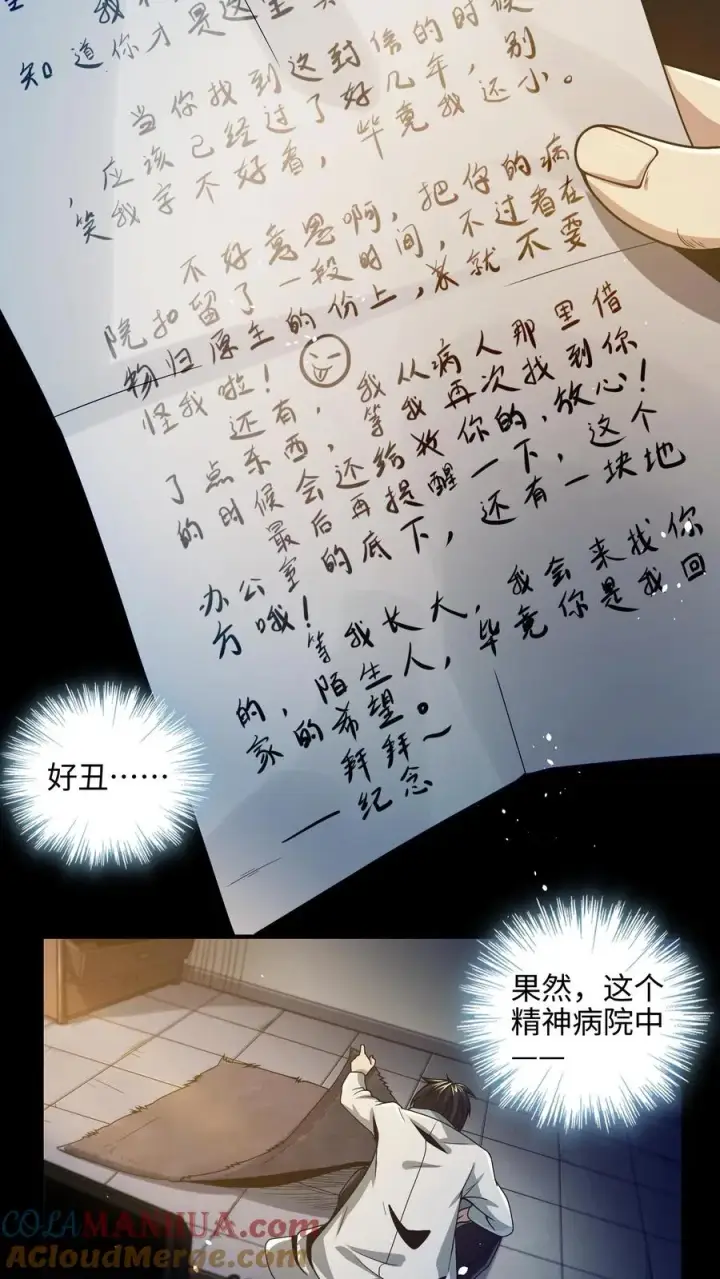 知道你才是这里
当你找到这封信的时候
，应该已经过了好几年，别
笑我字不好看，毕竟我还小。
不好意思啊，把你的病
院扣留了一段时间，不过看在
物归原主的份上，就不要
怪我啦！
还有，我从病人那里借
了点东西，等我再次找到你
的时候会还给你的，放心！
最后再提醒一下，这个
办公室的底下，还有一块地
方哦！
等我长大，我会来找你
的，陌生人，毕竟你是我回
家的希望。
拜拜～
——纪念
好丑……
果然，这个
精神病院中
——
COLAMANHUA.com
AcloudMerge.com